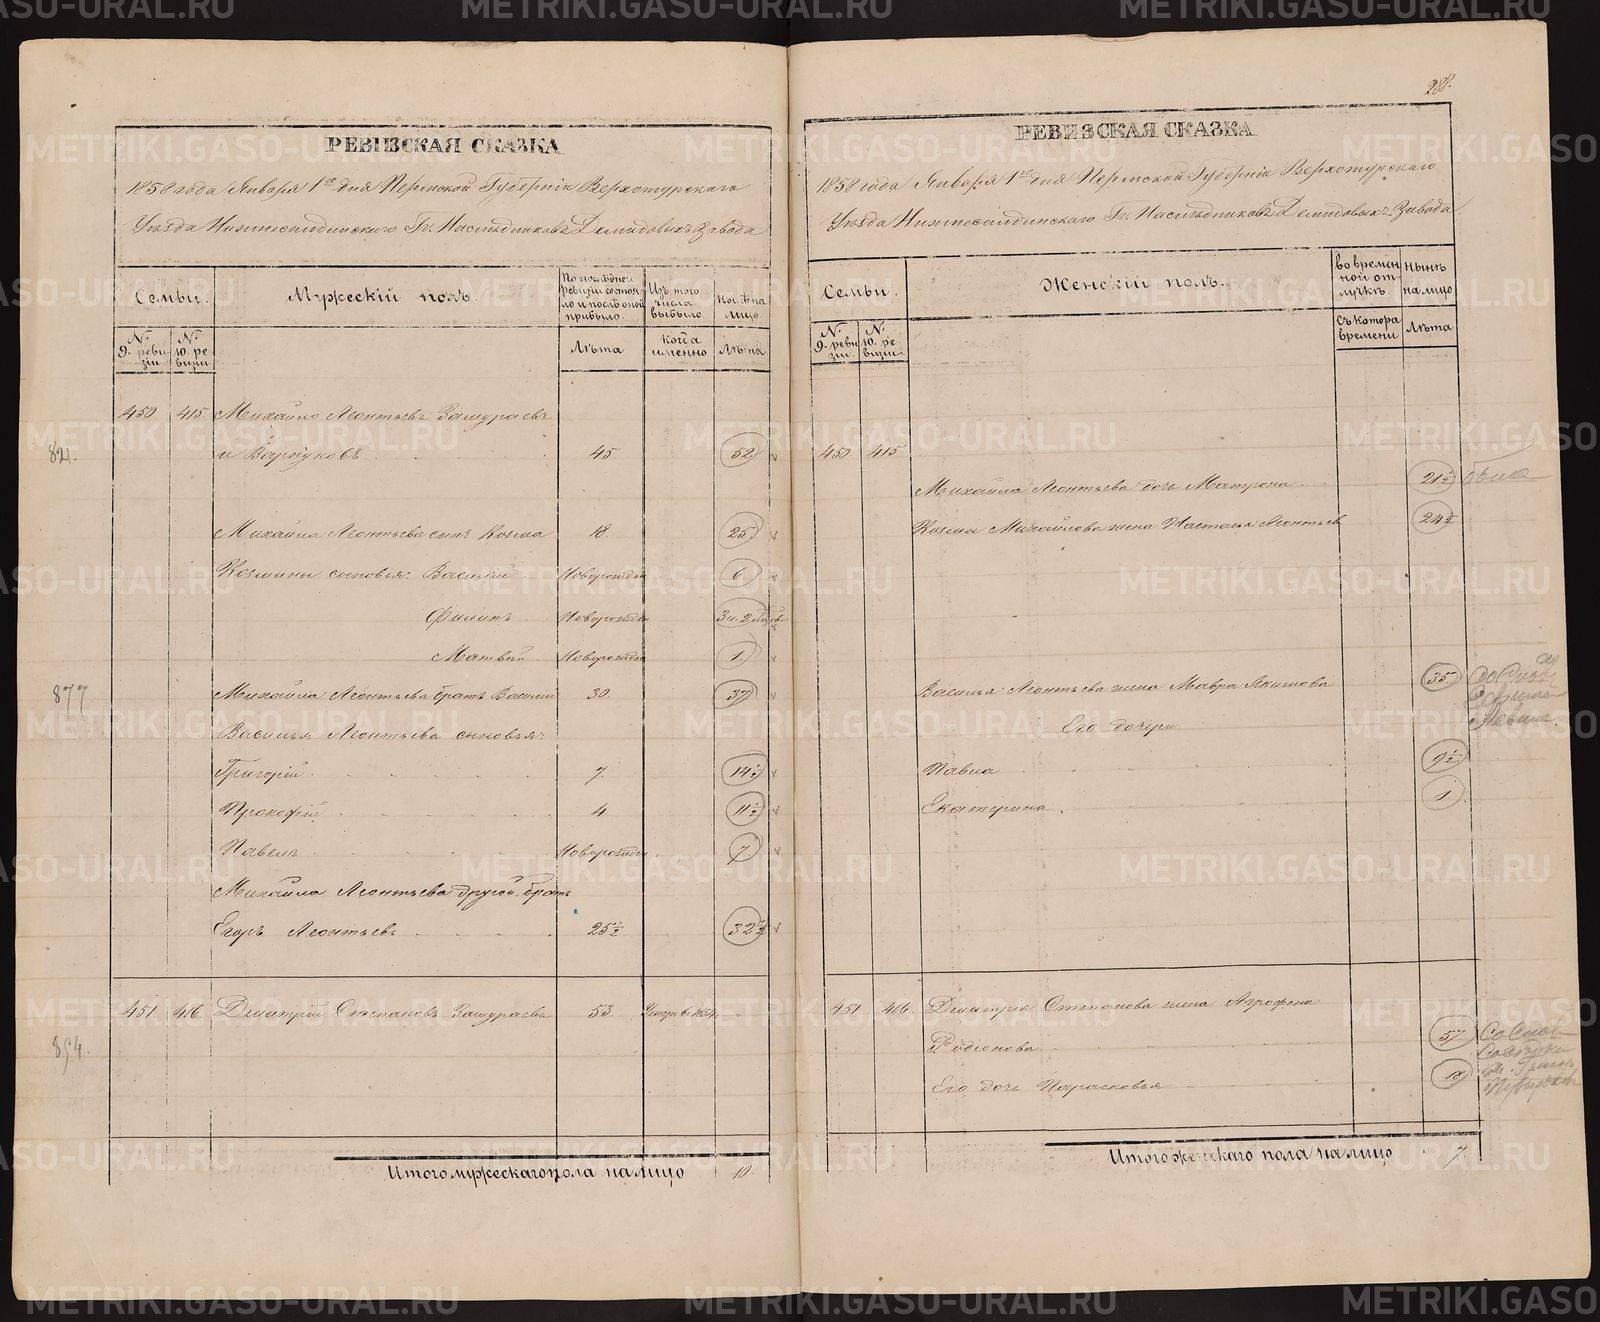 288.
РЕВИЗСКАЯ СКАЗКА
1858 года Января 1го дня Пермской Губерніи Верхотурскаго
Уѣзда Нижнесалдинскаго Гг. Наслѣдниковъ Демидовыхъ Завода
Семьи.
Мужескій полъ.
По послѣдней ревизіи состояло и послѣ оной прибыло.
Изъ того числа выбыло.
Нынѣ на лицо
№ 9. ревизіи
№ 10. ревизіи
Лѣта
Когда именно
Лѣта
450 415 Михайло Леонтьевъ Зашураевъ
821. и Варнуковъ 45 52
Михайла Леонтьева сынъ Козма 18. 25.
Козмины сыновья: Василій Новорожден 6.
Филипъ Новорожден 3 и 2 мѣсяц
Матвѣй Новорожден 1.
877. Михайла Леонтьева братъ Василій 30. 37
Василья Леонтьева сыновья:
Григорій 7. 14½
Прокофій 4 11½
Павелъ Новорожден 7
Михайла Леонтьева другой братъ
Егоръ Леонтьевъ 25½ 32½
451 416 Дмитрій Степановъ Зашураевъ 53. Умеръ въ 1854.
894.
Итого мужескаго пола на лицо 10.
РЕВИЗСКАЯ СКАЗКА
1858 года Января 1го дня Пермской Губерніи Верхотурскаго
Уѣзда Нижнесалдинскаго Гг. Наслѣдниковъ Демидовыхъ Завода
Семьи.
Женскій полъ.
во временной отлучкѣ.
нынѣ на лицо
№ 9. ревизіи
№ 10. ревизіи
Съ котора времени
Лѣта
450 415
Михайла Леонтьева дочь Матрона 21½
Козма Михайлова жена Настасья Леонтьев 24½
Василья Леонтьева жена Мавра Якимова 35
Его дочери
Павла 9½
Екатерина 1.
451 416. Дмитрія Степанова жена Агрофена
Родіонова 57
Его дочь Парасковья
Итого женскаго пола на лицо 7
METRIKI.GASO-URAL.RU